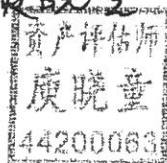 资产评估师
庹晓童
44200063